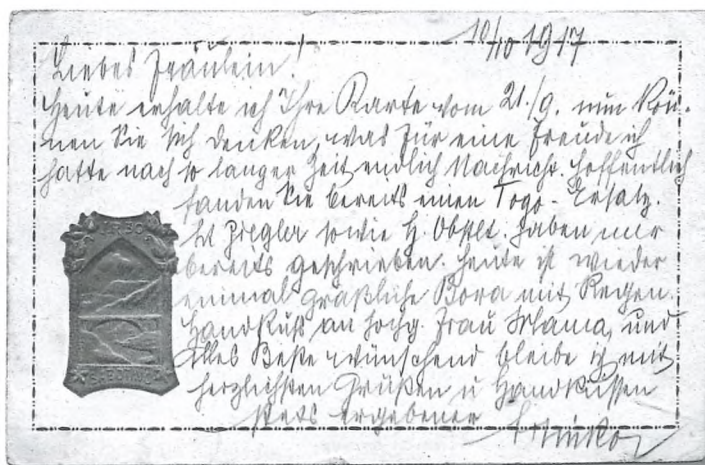 10/10 1917
Liebes Fräulein!
Heute erhalte ich Ihre Karte vom 21./9. nun kön-
nen Sie sich denken, was für eine Freude ich
hatte nach so langer Zeit endlich Nachricht. Hoffentlich
fanden Sie bereits einen Togo-Ersatz.
Ziegler sowie H. Obstlt. haben mir
bereits geschrieben. Heute ist wieder
einmal gräßliche Bora mit Regen.
Handkuß an hochg. Frau Mama, und
alles Beste wünschend bleibe ich mit
herzlichsten Grüßen u Handküssen
stets ergebener